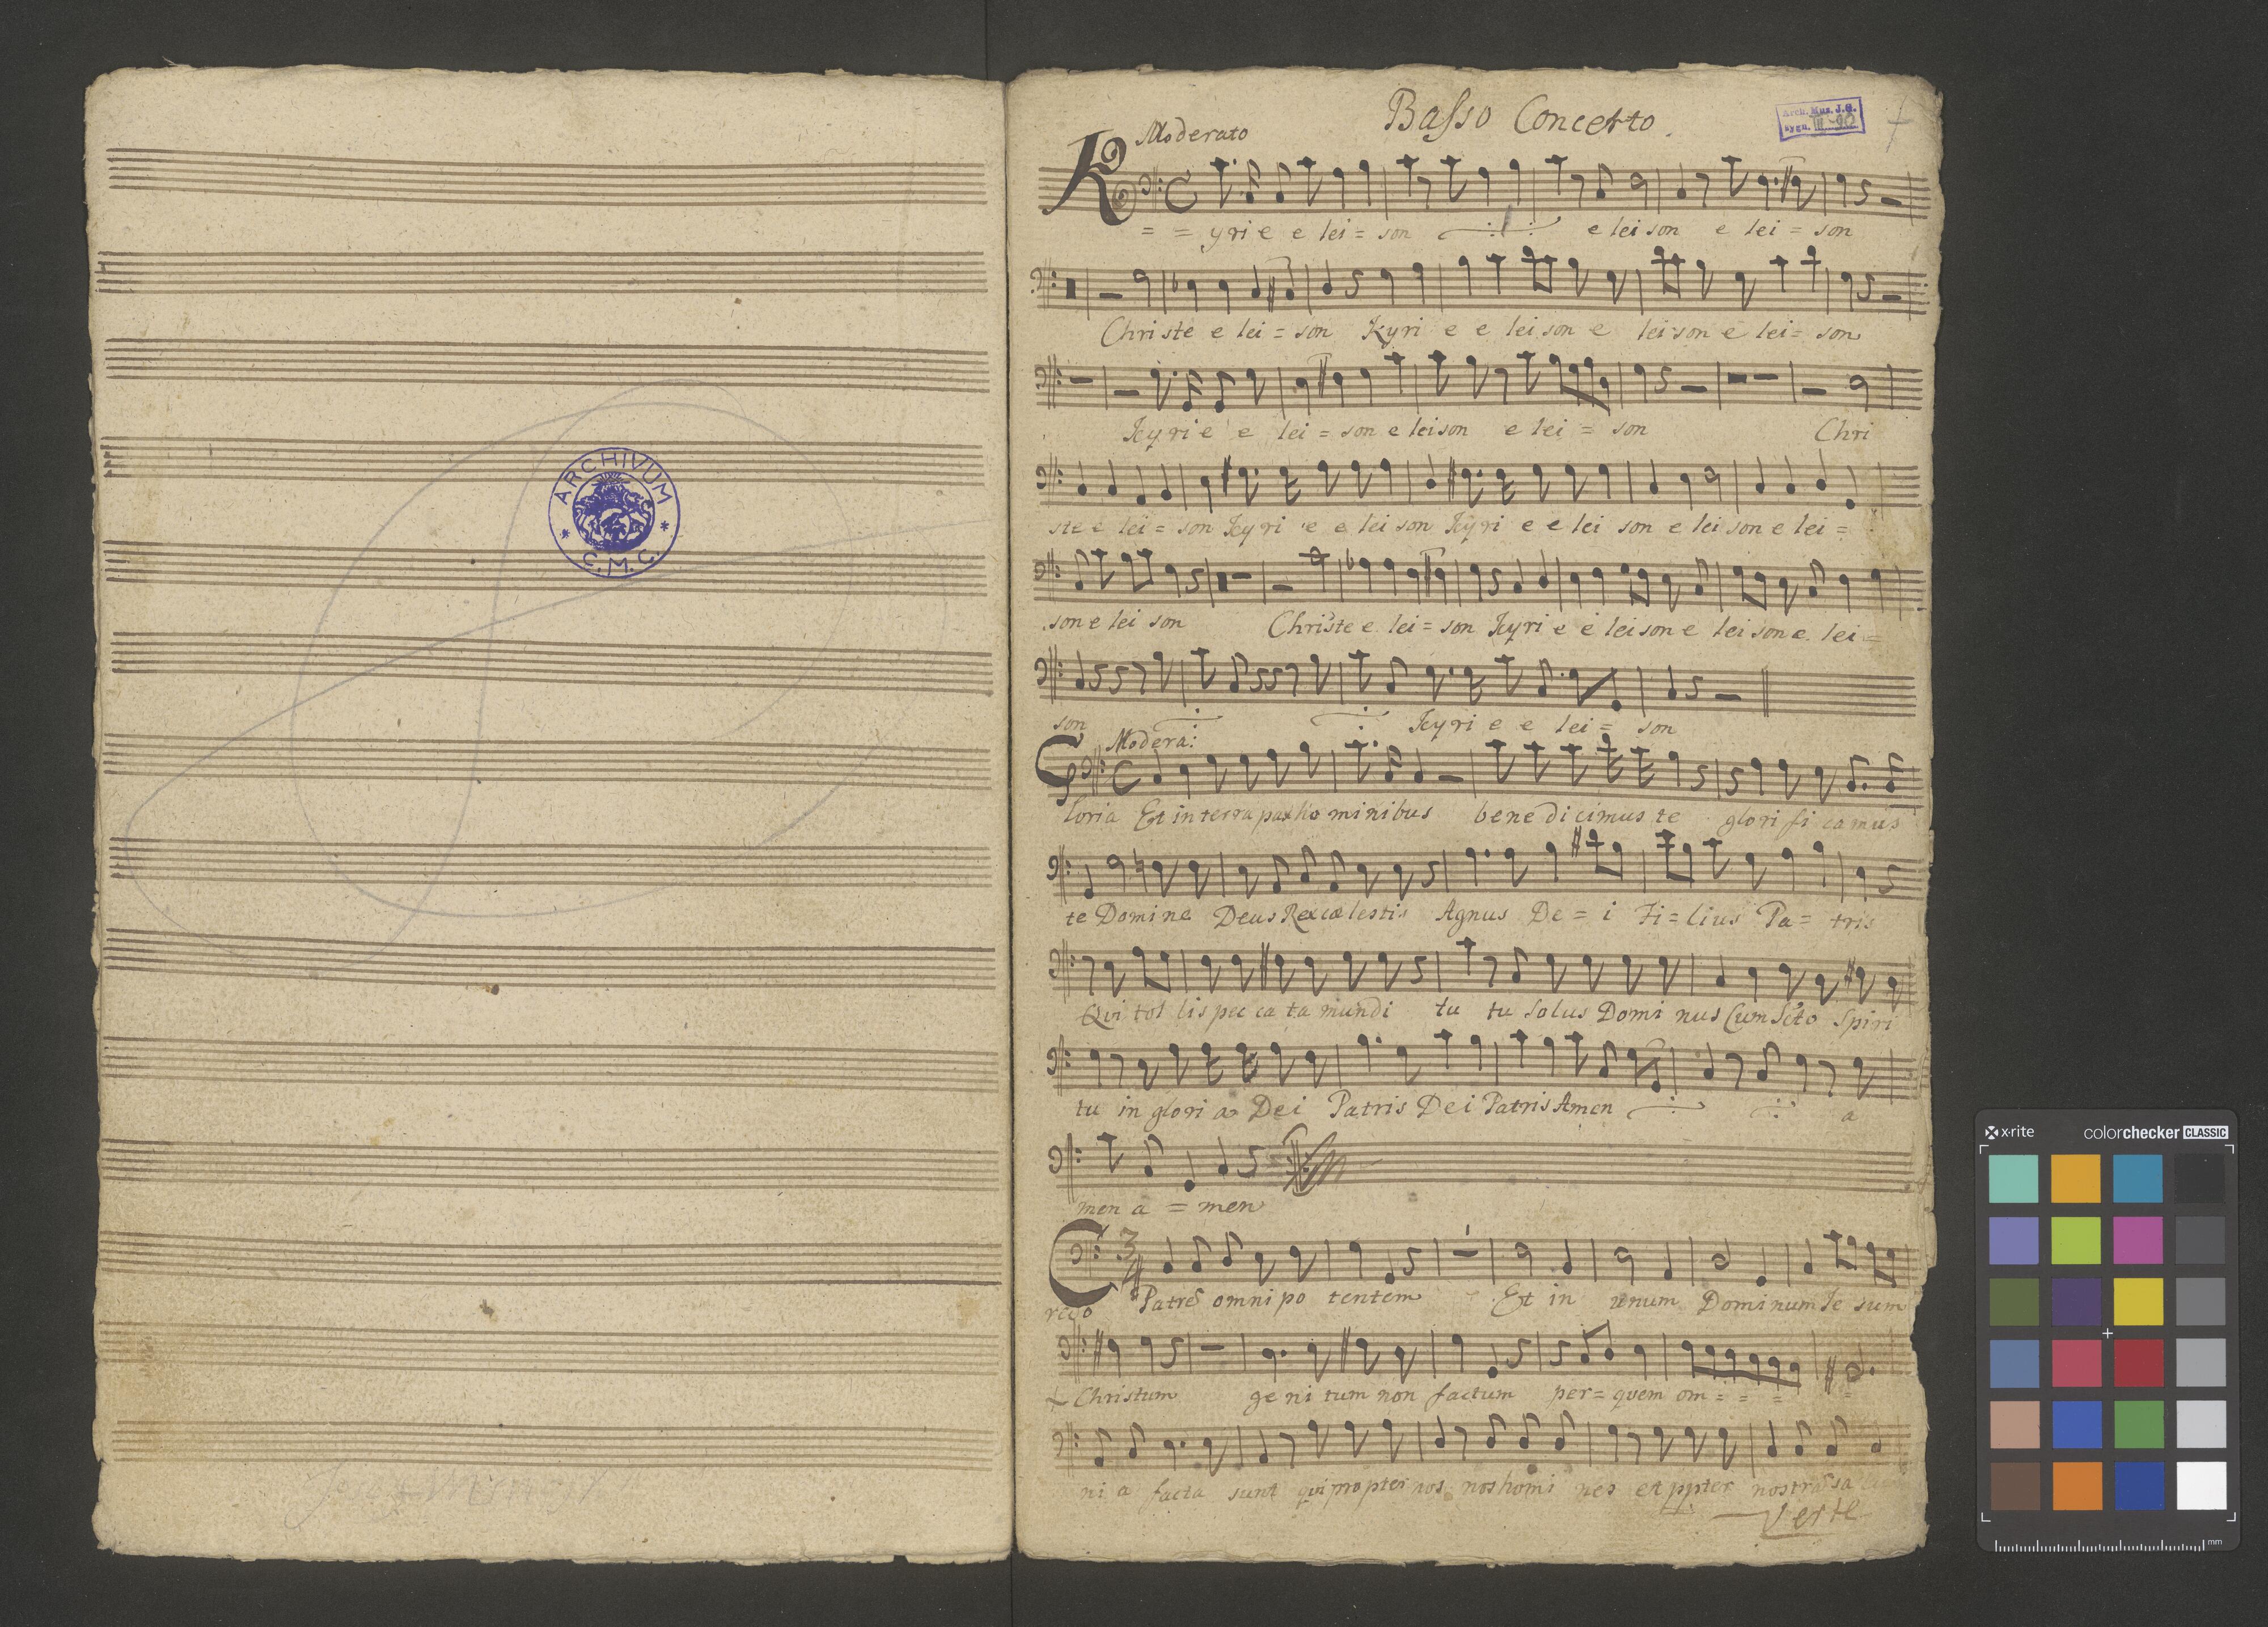 ARCHIVUM
C. M. C.
Basso Concerto.
Arch. Mus. J. G.
sygn. III-90
7
Moderato
K
= = yrie e lei = son e leison e lei = son
Christe e lei = son Kyri e e leison e leison e lei = son
Kyrie e lei = son e leison e lei = son Chri
ste e lei = son Kyri e e leison Kyri e e lei son e leison e lei =
son e lei son Christe e lei = son Kyri e e leison e leison e lei =
son Kyri e e lei = son
Modera:
G
loria Et in terra pax hominibus benedicimus te glorificamus
te Domine Deus Rex cœlestis Agnus De = i Fi = lius Pa = tris
Qui tol lis pec ca ta mundi tu tu solus Domi nus Cum Scto Spiri
tu in glori a Dei Patris Dei Patris Amen a
men a = men
C 3/4
redo Patrē omnipo tentem Et in unum Dominum Je sum
Christum ge ni tum non factum per = quem om = = =
ni a facta sunt qui propter nos nos homi nes et ppter nostrā sa
Verte
x-rite
colorchecker CLASSIC
mm